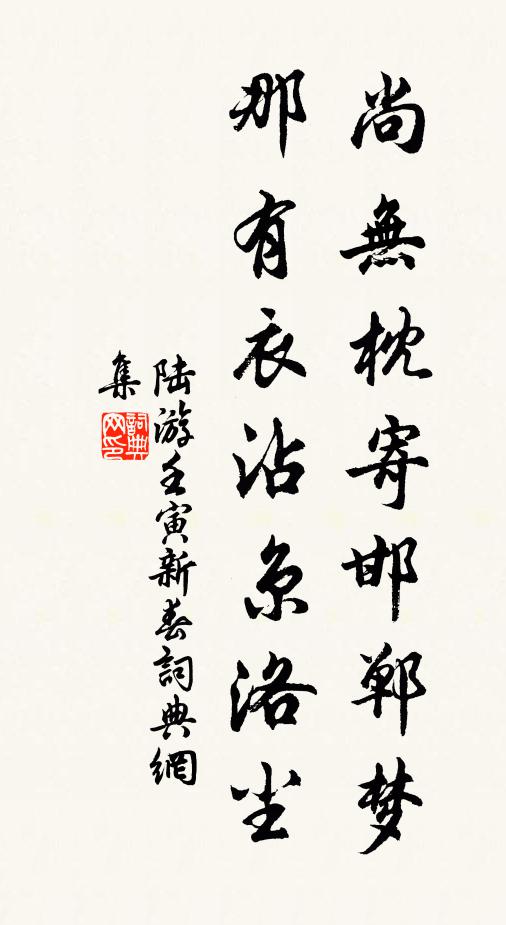 尚無枕寄邯鄲梦
那有衣沾京洛尘
陆游壬寅新春詞典網
集
詞典
网印